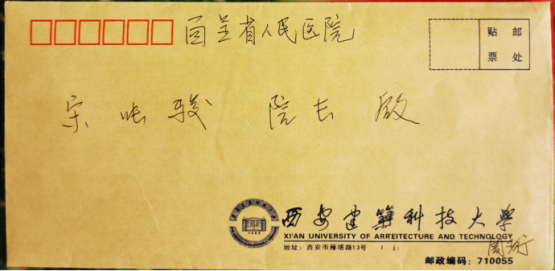 省人民医院
贴 邮
票 处
宋 骏 院长 启
西安建筑科技大学
XI'AN UNIVERSITY OF ARFEITECTURE AND TECHNOLOGY
地址：西安市雁塔路13号
邮政编码：710055